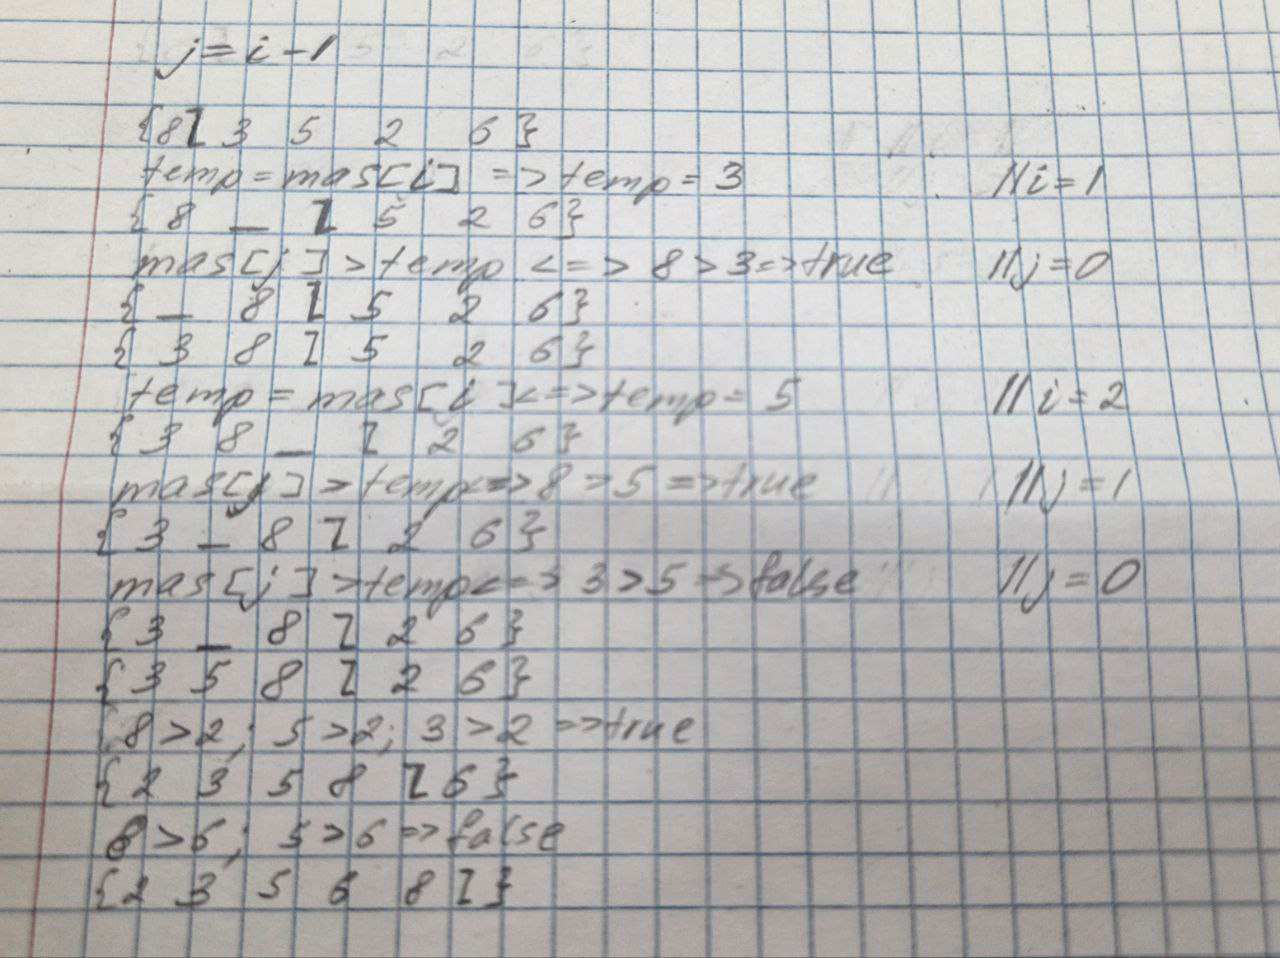 j = i - 1
{8 ] 3 5 2 6}
temp = mas[i] => temp = 3 //i = 1
{8 _ ] 5 2 6}
mas[j] > temp <=> 8 > 3 => true //j = 0
{_ 8 ] 5 2 6}
{3 8 ] 5 2 6}
temp = mas[i] <=> temp = 5 //i = 2
{3 8 _ ] 2 6}
mas[j] > temp <=> 8 > 5 => true //j = 1
{3 _ 8 ] 2 6}
mas[j] > temp <=> 3 > 5 => false //j = 0
{3 _ 8 ] 2 6}
{3 5 8 ] 2 6}
8 > 2; 5 > 2; 3 > 2 => true
{2 3 5 8 ] 6}
8 > 6; 5 > 6 => false
{2 3 5 6 8 ]}